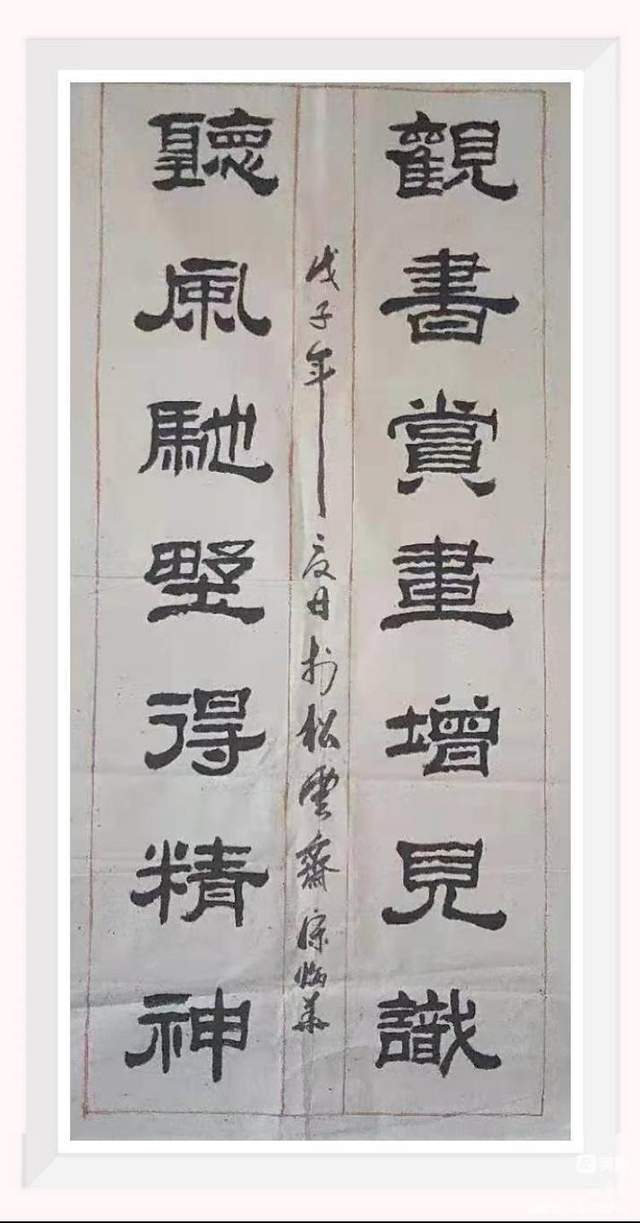 觀書賞畫增見識
聽風馳墅得精神
戊子年夏日於松雲齋